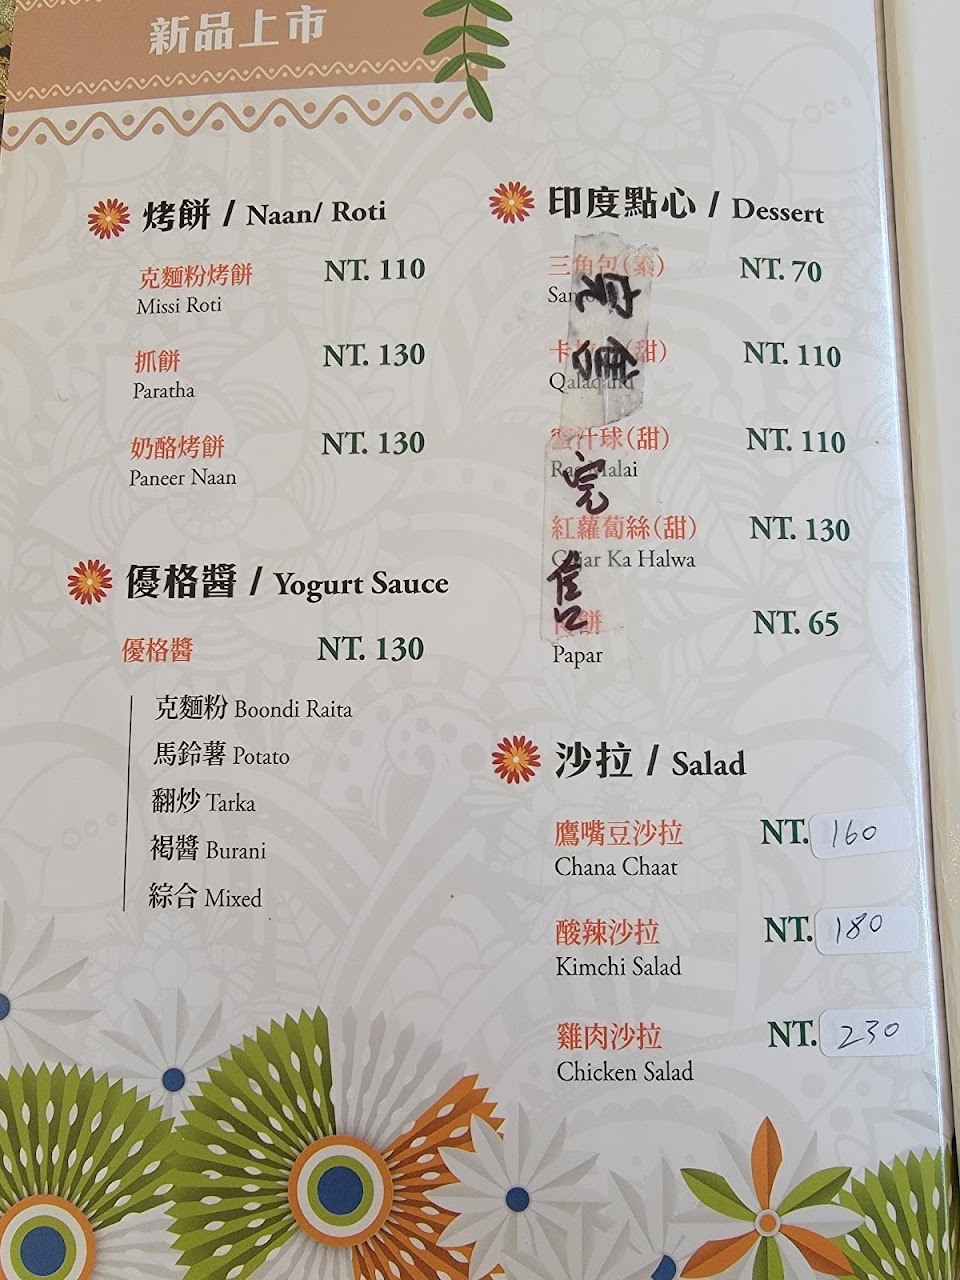 新品上市
烤餅 / Naan/ Roti
克麵粉烤餅 NT. 110
Missi Roti
抓餅 NT. 130
Paratha
奶酪烤餅 NT. 130
Paneer Naan
優格醬 / Yogurt Sauce
優格醬 NT. 130
克麵粉 Boondi Raita
馬鈴薯 Potato
翻炒 Tarka
褐醬 Burani
綜合 Mixed
印度點心 / Dessert
三角包(素) NT. 70
(甜) NT. 110
蜜汁球(甜) NT. 110
Malai
紅蘿蔔絲(甜) NT. 130
Gajar Ka Halwa
餅 NT. 65
Papar
完售
沙拉 / Salad
鷹嘴豆沙拉 NT. 160
Chana Chaat
酸辣沙拉 NT. 180
Kimchi Salad
雞肉沙拉 NT. 230
Chicken Salad